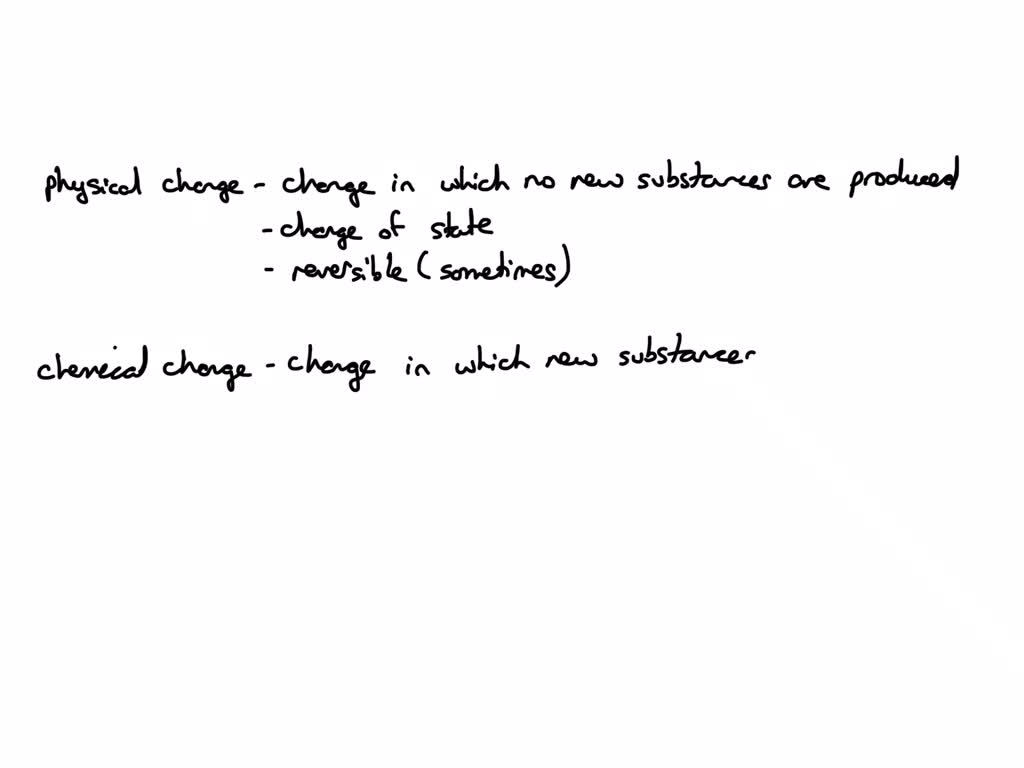 physical change - change in which no new substances are produced
- change of state
- reversible (sometimes)
chemical change - change in which new substances